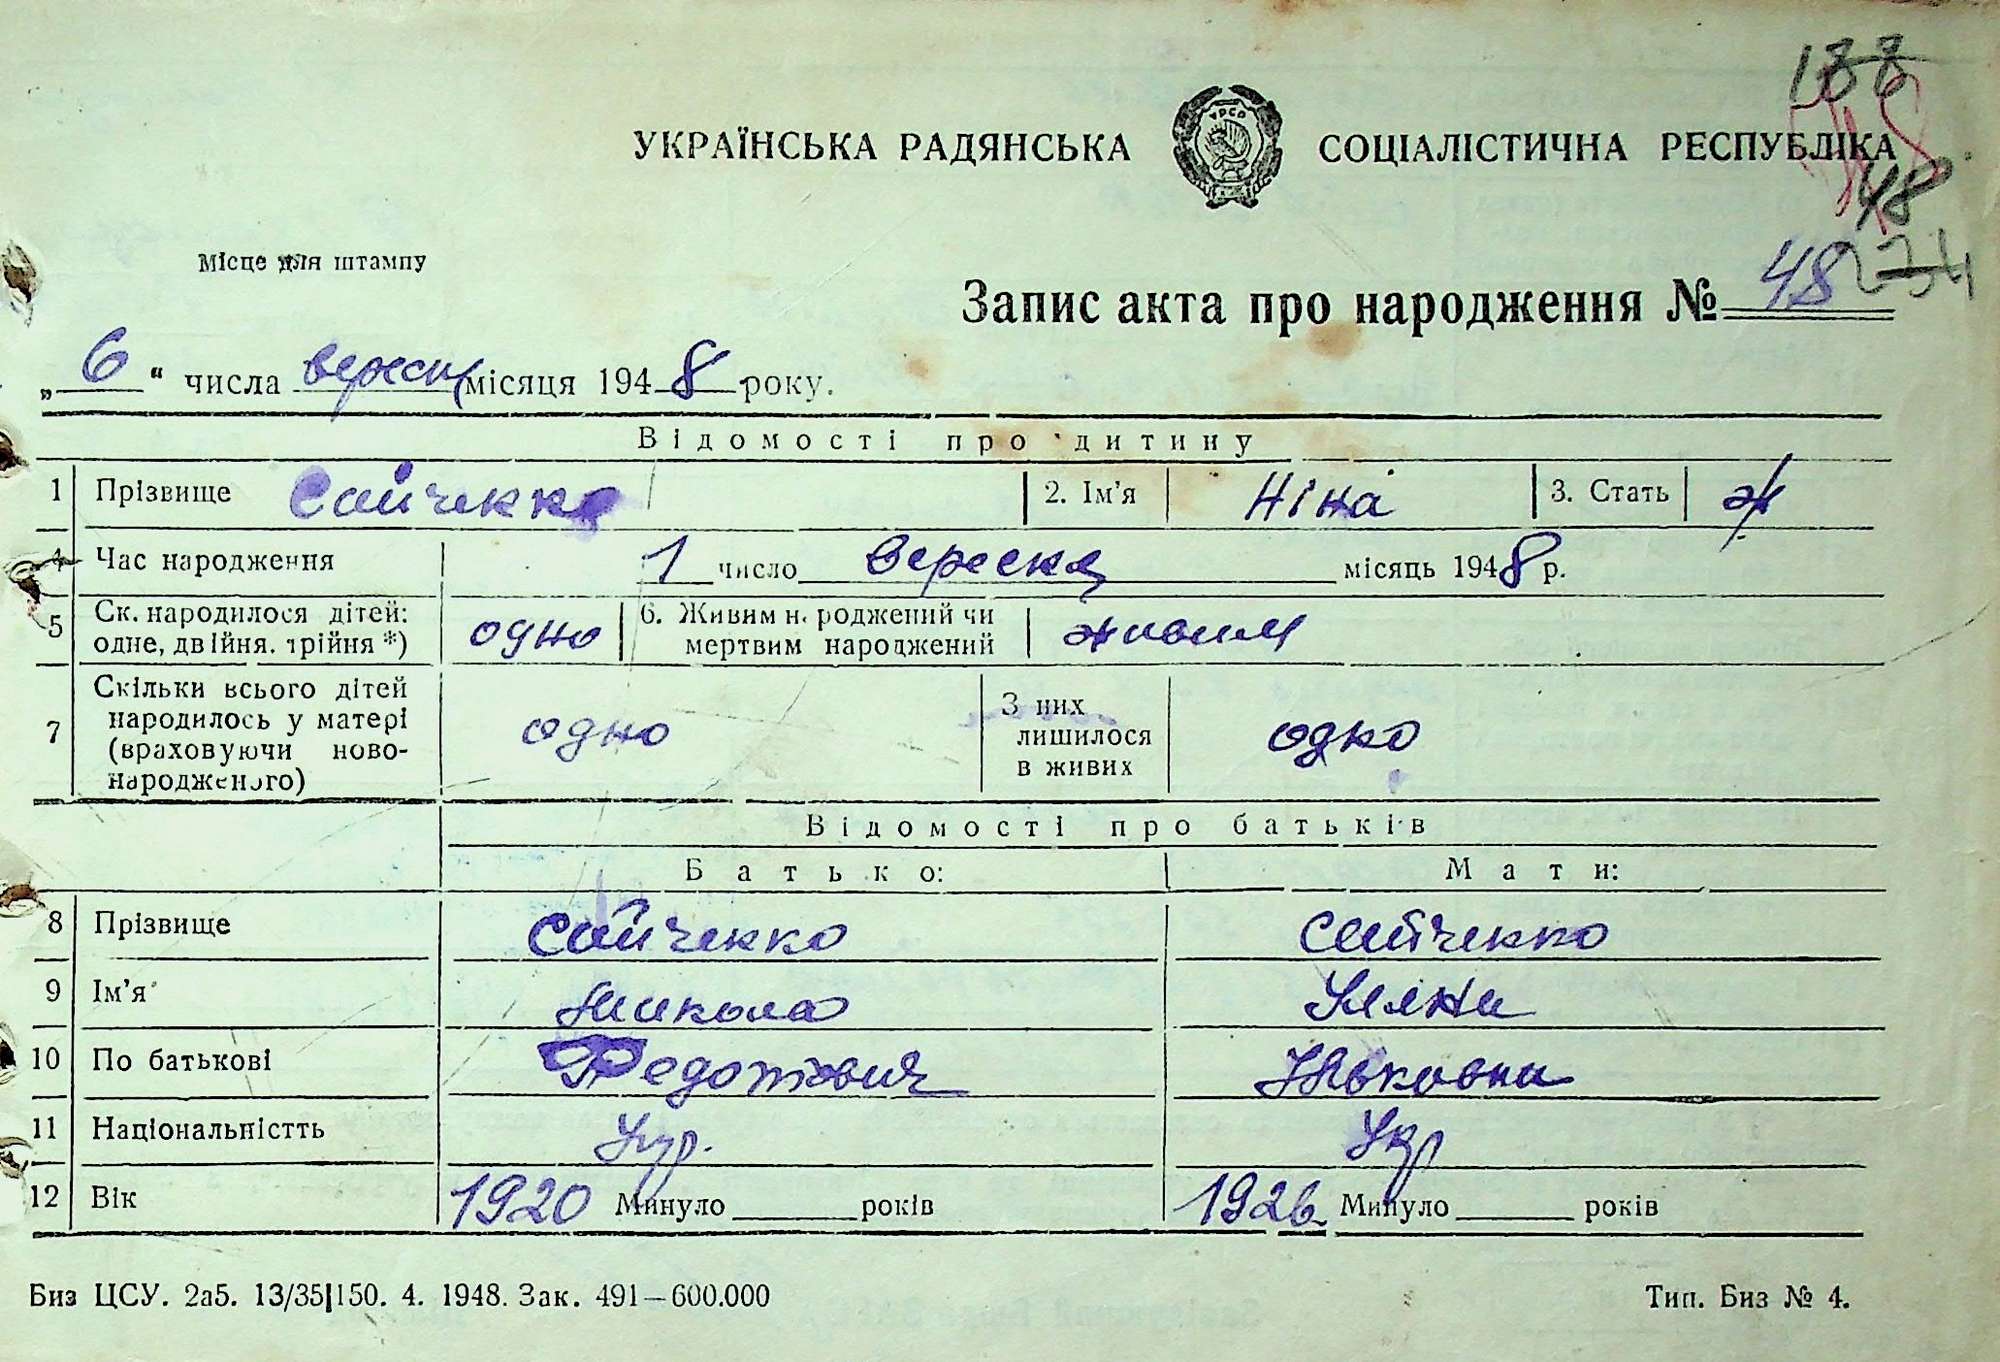 188
УКРАЇНСЬКА РАДЯНСЬКА СОЦІАЛІСТИЧНА РЕСПУБЛІКА
УРСР
48
Місце для штампу
234
Запис акта про народження № 48
„6“ числа вересня місяця 1948 року.
Відомості про дитину
1 Прізвище Сайченко 2. Ім’я Ніна 3. Стать ж
4 Час народження 1 число вересня місяць 1948 р.
5 Ск. народилося дітей: одне, двійня. трійня *) одно 6. Живим народжений чи мертвим народжений живим
7 Скільки всього дітей народилось у матері (враховуючи новонародженого) одно З них лишилося в живих одно
Відомості про батьків
Батько: Мати:
8 Прізвище Сайченко Сайченко
9 Ім’я Микола Уляна
10 По батькові Федотович Яковна
11 Національністть Укр. Укр
12 Вік 1920 Минуло ______ років 1926 Минуло ______ років
Биз ЦСУ. 2а5. 13/35|150. 4. 1948. Зак. 491—600.000 Тип. Биз № 4.